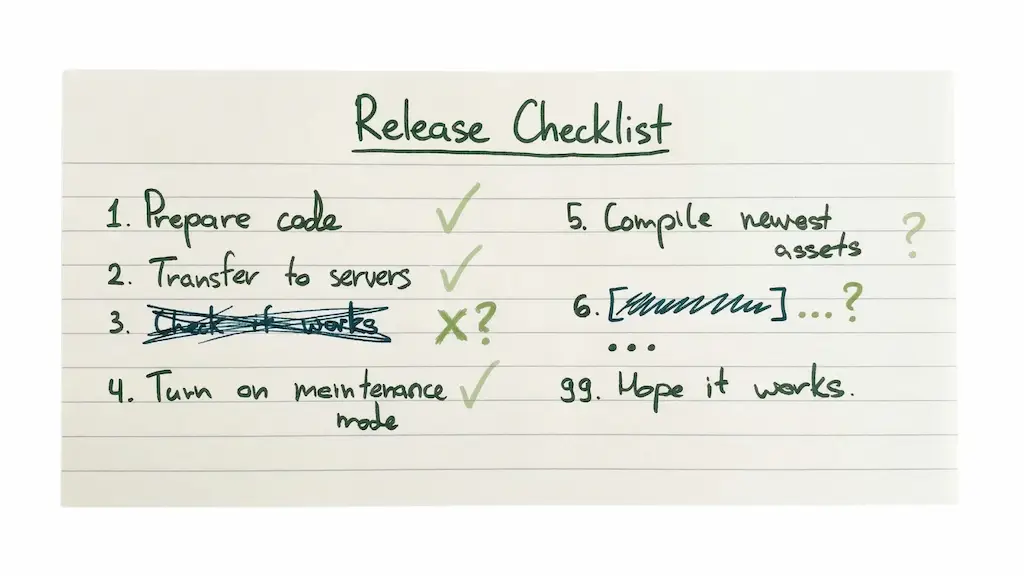 Release Checklist
1. Prepare code ✓
2. Transfer to servers ✓
3. Check if works X?
4. Turn on meintenance ✓
mode
5. Compile newest ?
assets
6. [ ] ...?
...
99. Hope it works.